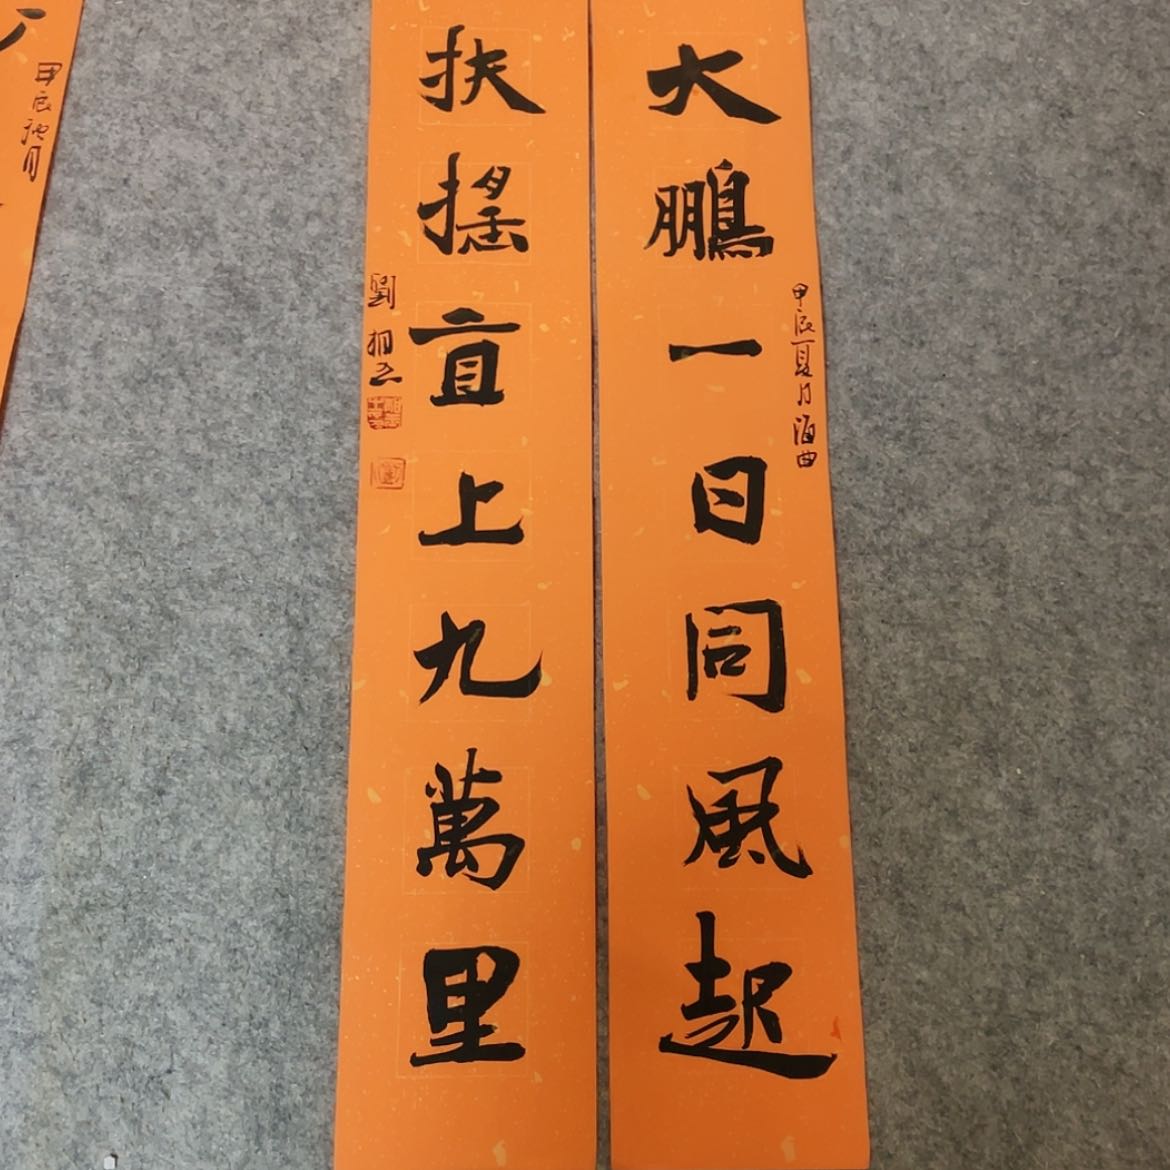 大鵬一日同風起
甲辰夏月海曲
扶搖直上九萬里
劉
甲辰
月